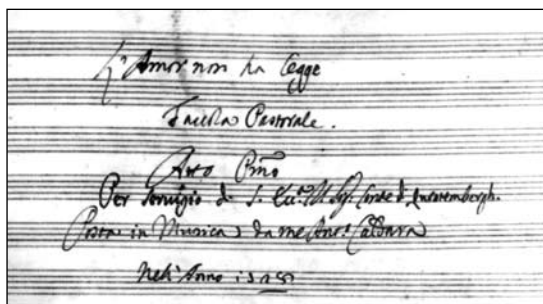 L'Amor non ha legge
Favola Pastorale.
Atto Pmo
Per Servigio di S. Ecc.ª Il Sig. Conte di Questembergh.
Posta in Musica da me Ant.º Caldara
Nell'Anno